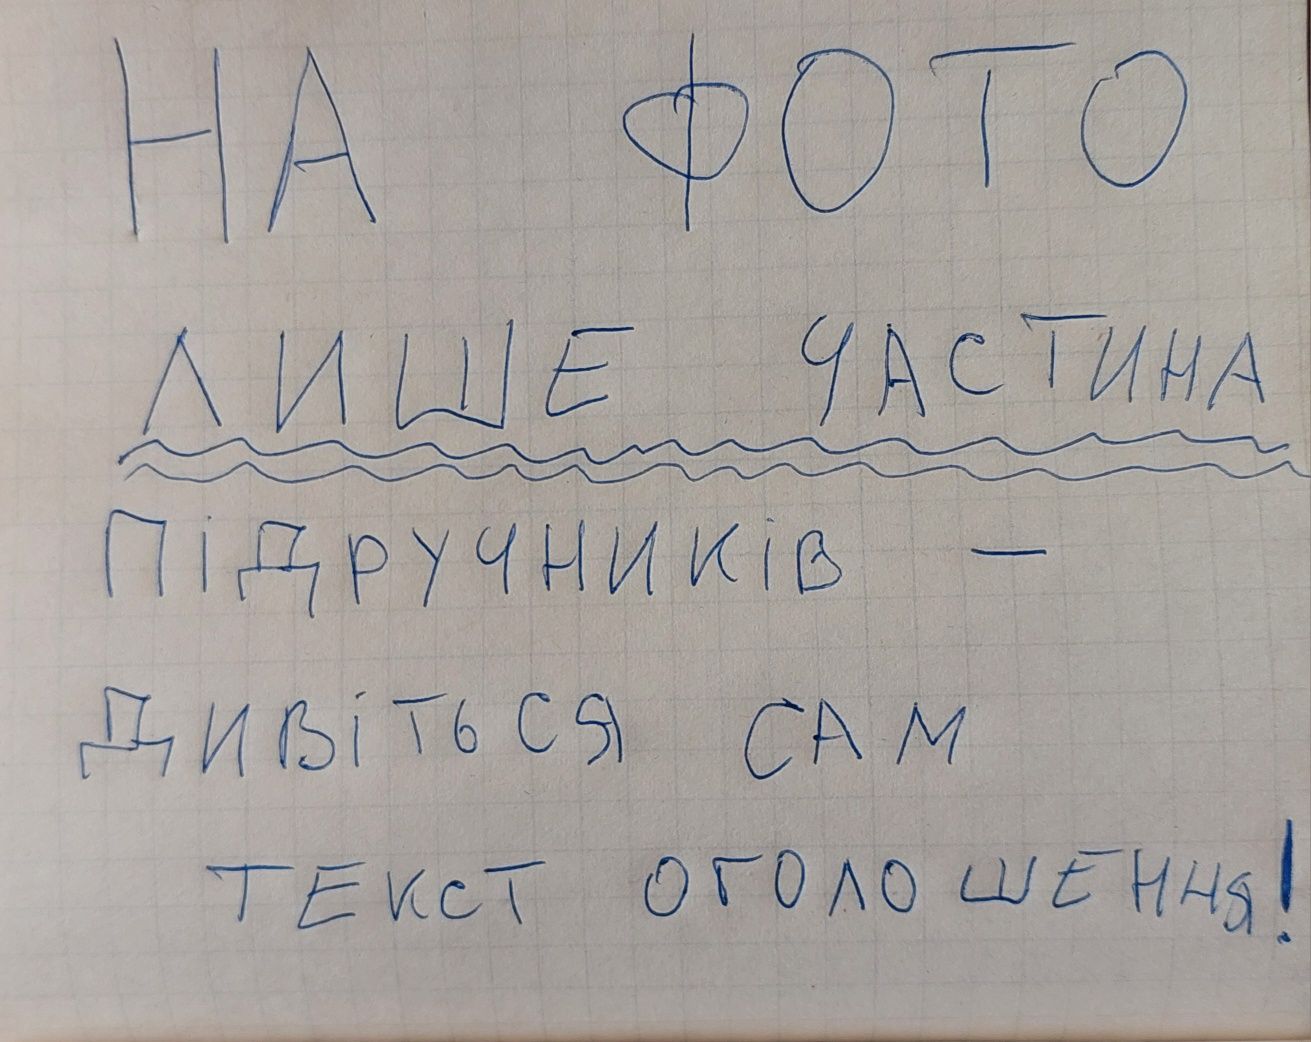 НА ФОТО
ЛИШЕ ЧАСТИНА
ПІДРУЧНИКІВ —
ДИВІТЬСЯ САМ
ТЕКСТ ОГОЛОШЕННЯ!